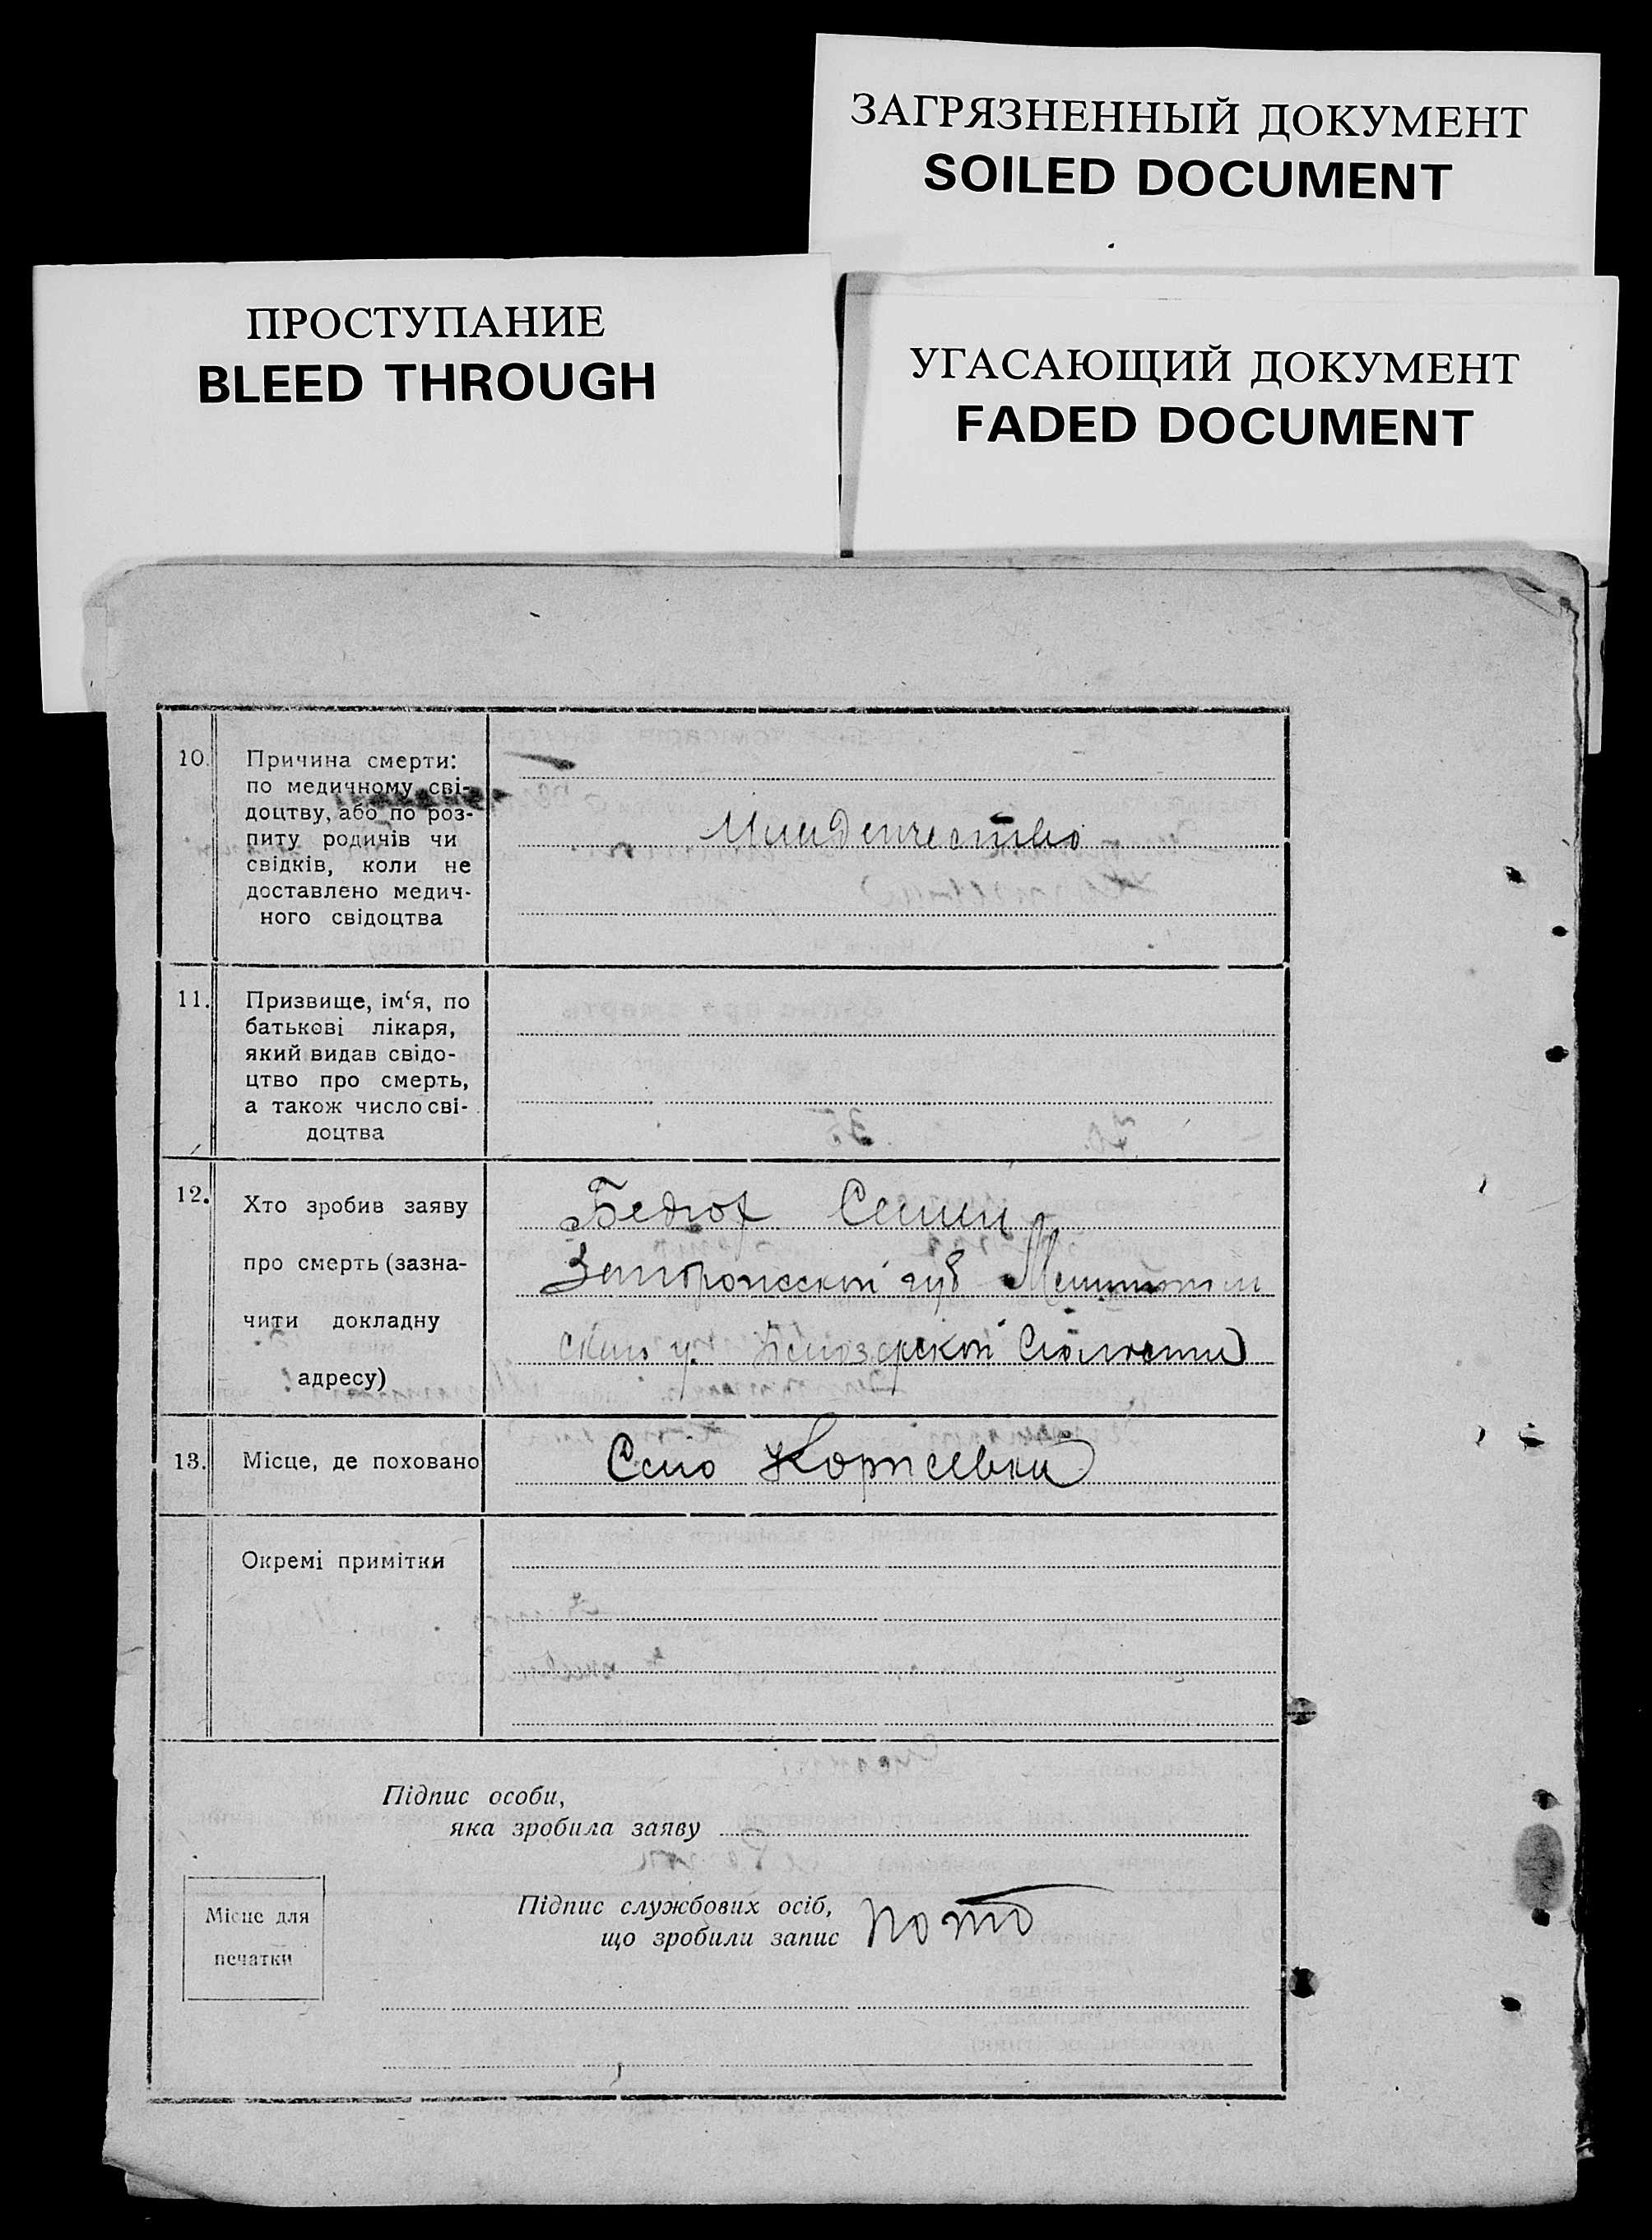 ЗАГРЯЗНЕННЫЙ ДОКУМЕНТ
SOILED DOCUMENT
ПРОСТУПАНИЕ
BLEED THROUGH
УГАСАЮЩИЙ ДОКУМЕНТ
FADED DOCUMENT
10. Причина смерти:
по медичному сві-
доцтву, або по роз-
питу родичів чи
свідків, коли не
доставлено медич-
ного свідоцтва
Младенчество
11. Призвище, ім‘я, по
батькові лікаря,
який видав свідо-
цтво про смерть,
а також число сві-
доцтва
12. Хто зробив заяву
про смерть (зазна-
чити докладну
адресу)
Запорожской губ
у.
13. Місце, де поховано
Село
Окремі примітки
Підпис особи,
яка зробила заяву
Місце для
печатки
Підпис службових осіб,
що зробили запис